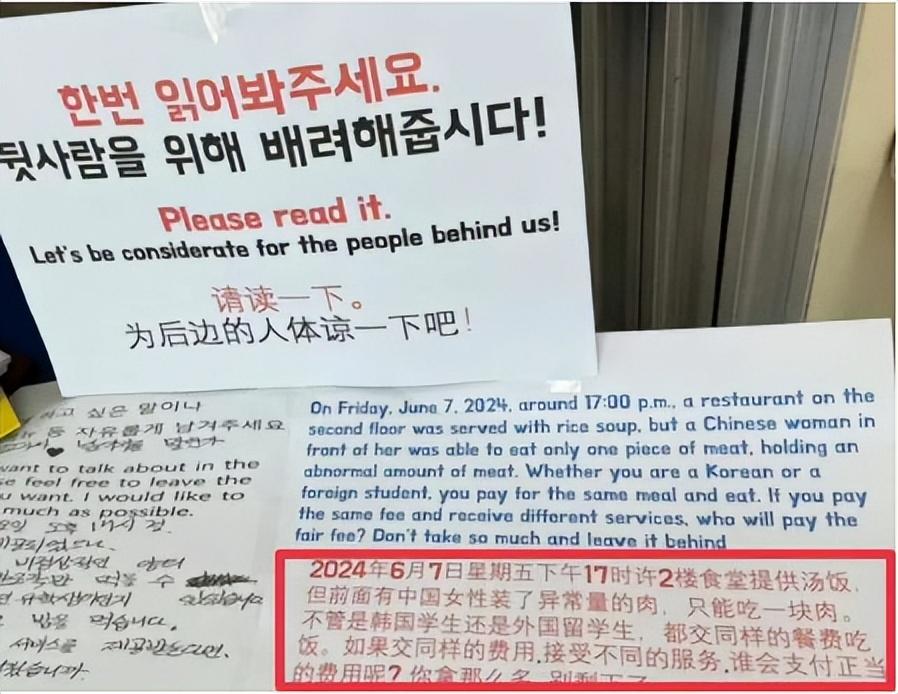 한번 읽어봐주세요.
뒷사람을 위해 배려해줍시다!
Please read it.
Let's be considerate for the people behind us!
请读一下。
为后边的人体谅一下吧!
하고 싶은 말이나
등 자유롭게 남겨주세요
want to talk about in the
se feel free to leave the
u want. I would like to
much as possible.
비정상적인
수
밥을 먹습니다.
서비스를
On Friday, June 7, 2024, around 17:00 p.m., a restaurant on the
second floor was served with rice soup, but a Chinese woman in
front of her was able to eat only one piece of meat, holding an
abnormal amount of meat. Whether you are a Korean or a
foreign student, you pay for the same meal and eat. If you pay
the same fee and receive different services, who will pay the
fair fee? Don't take so much and leave it behind
2024年6月7日星期五下午17时许2楼食堂提供汤饭,
但前面有中国女性装了异常量的肉, 只能吃一块肉。
不管是韩国学生还是外国留学生, 都交同样的餐费吃
饭。如果交同样的费用,接受不同的服务,谁会支付正当
的费用呢? 你拿那么多, 别剩下了